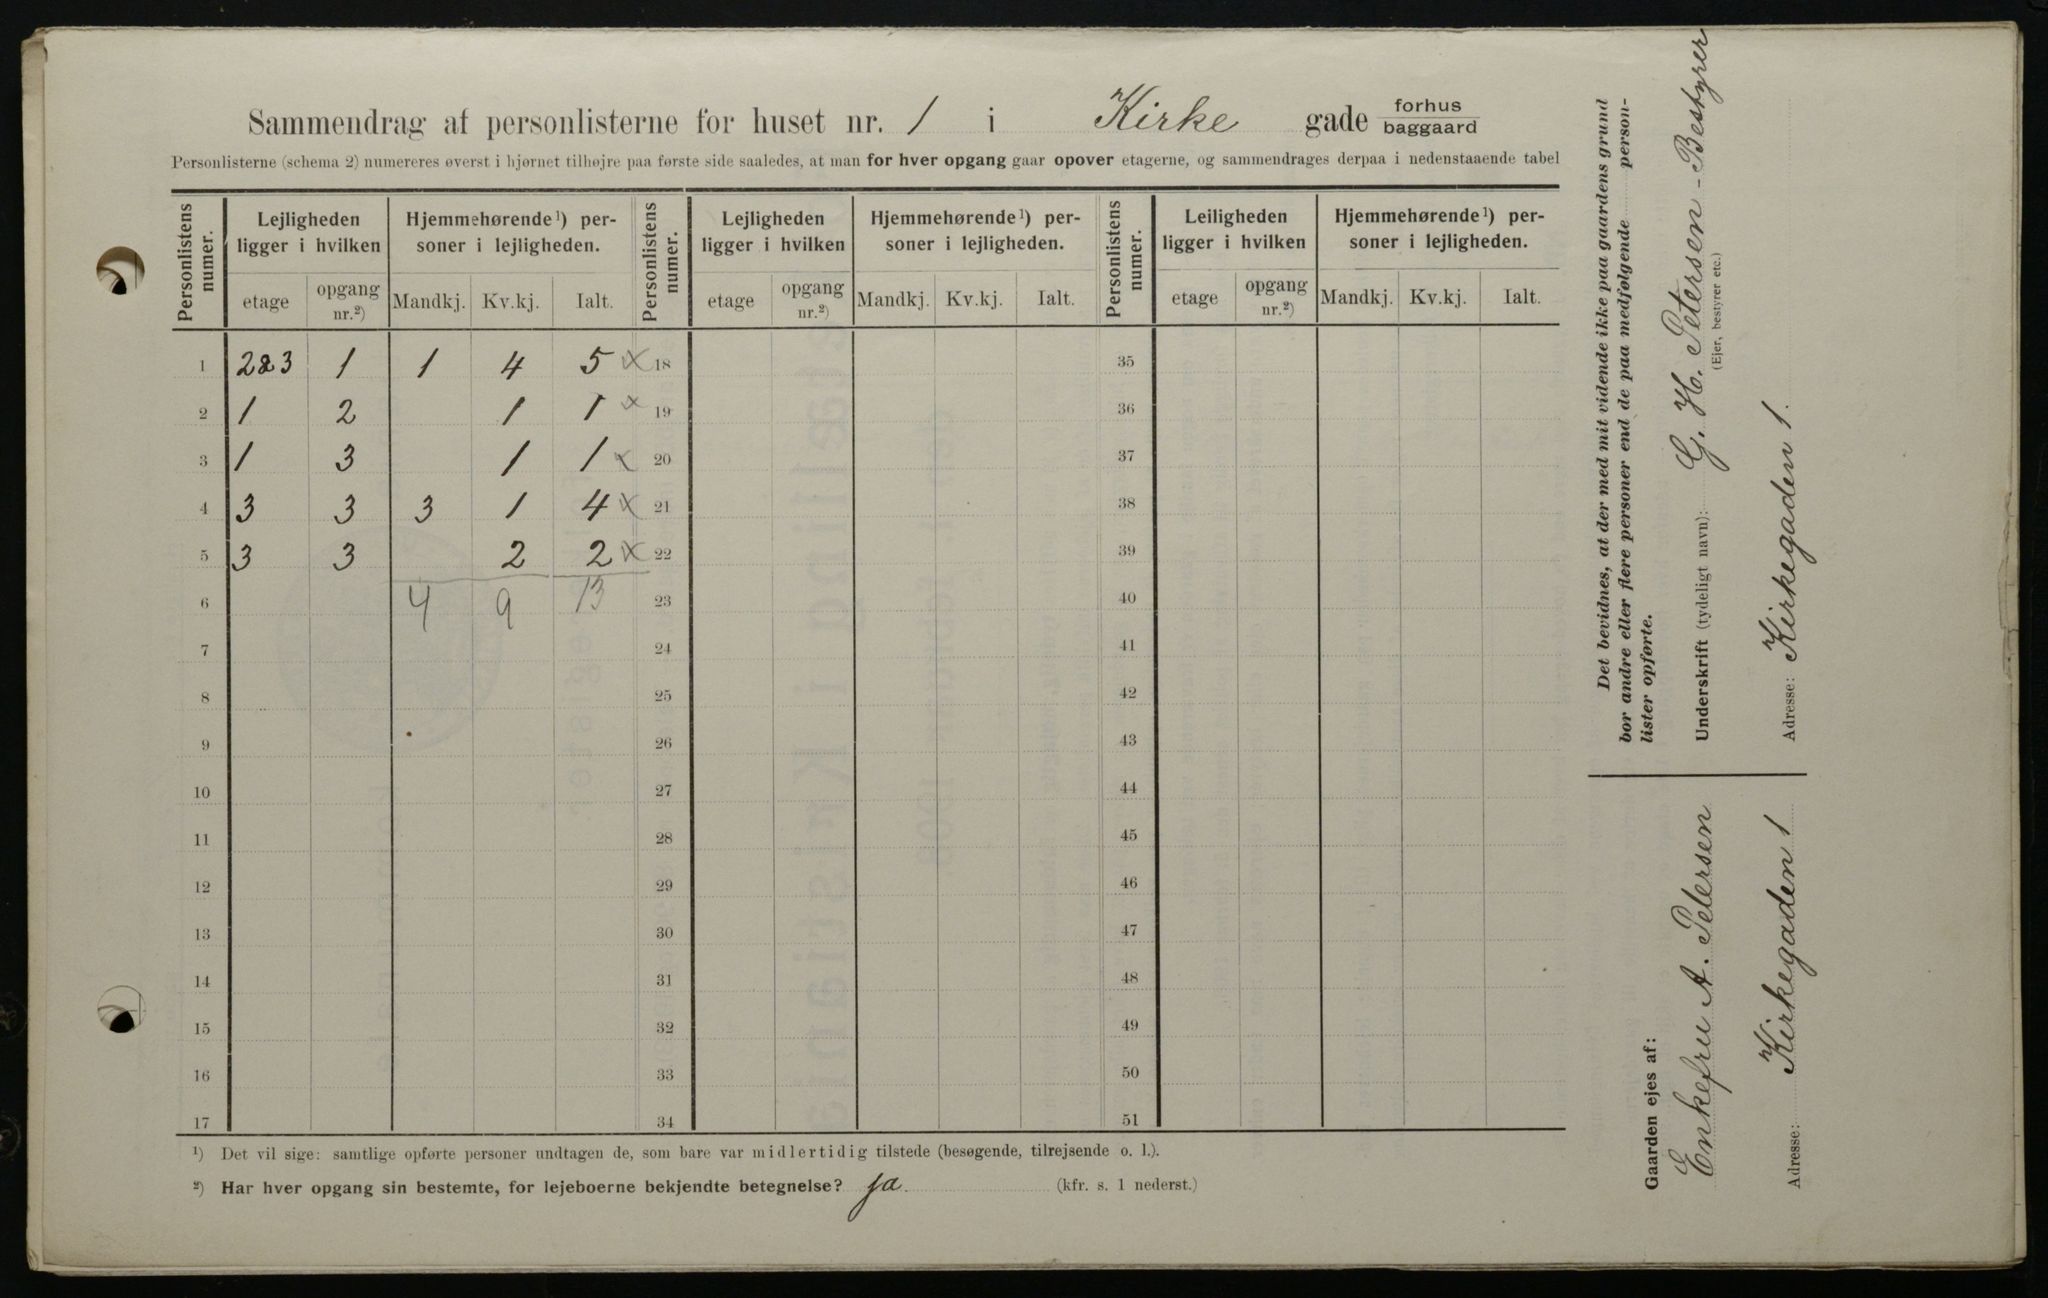 Sammendrag af personlisterne for huset nr. 1 i Kirke gade forhus
baggaard
Personlisterne (schema 2) numereres øverst i hjørnet tilhøjre paa første side saaledes, at man for hver opgang gaar opover etagerne, og sammendrages derpaa i nedenstaaende tabel
Personlistens numer. Lejligheden ligger i hvilken Hjemmehørende¹) personer i lejligheden. Personlistens numer. Lejligheden ligger i hvilken Hjemmehørende¹) personer i lejligheden. Personlistens numer. Leiligheden ligger i hvilken Hjemmehørende¹) personer i lejligheden.
etage opgang nr.²) Mandkj. Kv.kj. Ialt. etage opgang nr.²) Mandkj. Kv.kj. Ialt. etage opgang nr.²) Mandkj. Kv.kj. Ialt.
1 2&3 1 1 4 5 x 18 35
2 1 2 1 1 x 19 36
3 1 3 1 1 x 20 37
4 3 3 3 1 4 x 21 38
5 3 3 2 2 x 22 39
6 4 9 13 23 40
7 24 41
8 25 42
9 26 43
10 27 44
11 28 45
12 29 46
13 30 47
14 31 48
15 32 49
16 33 50
17 34 51
¹) Det vil sige: samtlige opførte personer undtagen de, som bare var midlertidig tilstede (besøgende, tilrejsende o. l.).
²) Har hver opgang sin bestemte, for lejeboerne bekjendte betegnelse? ja. (kfr. s. 1 nederst.)
Det bevidnes, at der med mit vidende ikke paa gaardens grund
bor andre eller flere personer end de paa medfølgende person-
lister opførte.
Underskrift (tydeligt navn): G. H. Petersen - Bestyrer
(Ejer, bestyrer etc.)
Adresse: Kirkegaden 1.
Gaarden ejes af:
Enkefru A. Petersen
Adresse: Kirkegaden 1